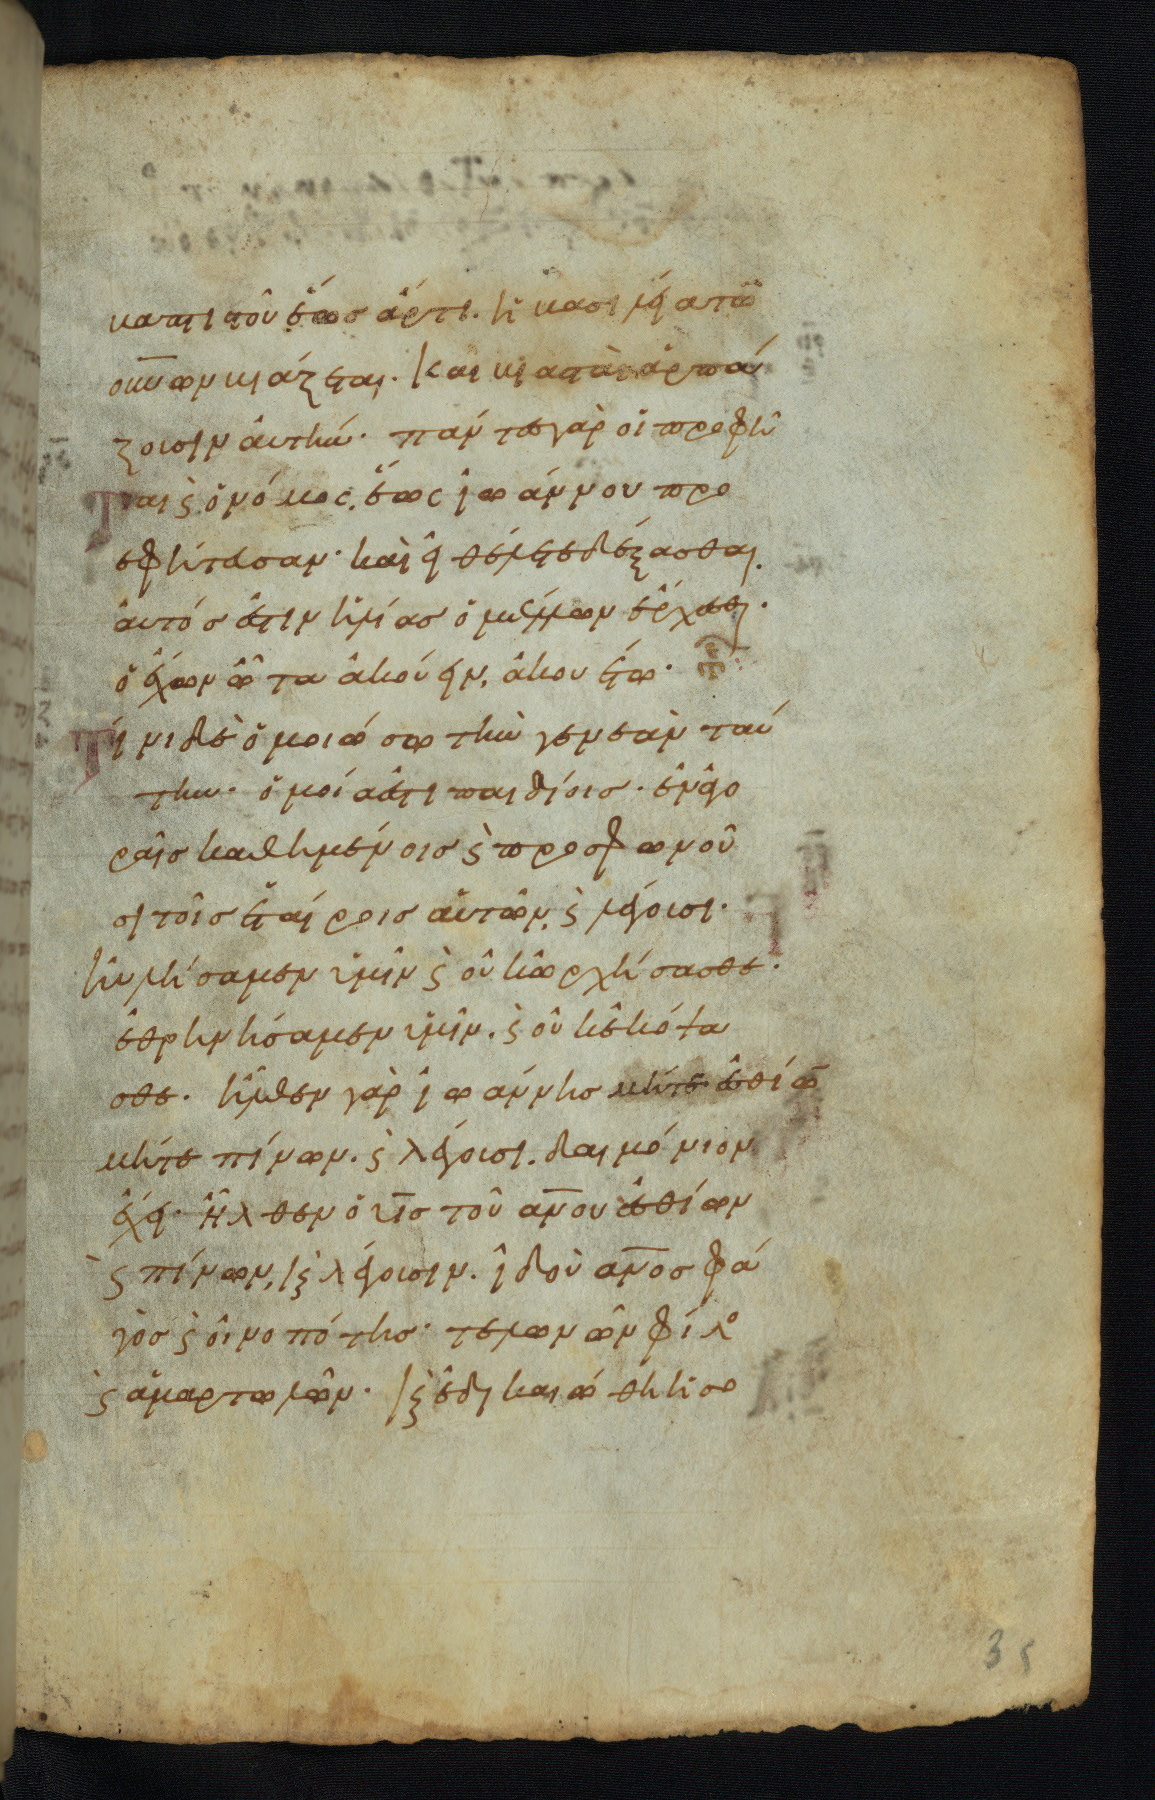 καπτιστοῦ ἕως ἄρτι. ἡ βασιλεία τῶ
οὐνων βιάζεται. καὶ βιασταὶ ἁρπά
ζουσιν αὐτήν. πάντες γὰρ οἱ προφῆ
ται ϗ ὁ νόμος, ἕως ἰωάννου προ
εφήτευσαν. καὶ εἰ θέλετε δέξασθαι
αὐτός ἐστιν ἠλίας ὁ μέλλων ἔρχεσθαι.
ὁ ἔχων ὦτα ἀκούειν, ἀκουέτω.
Τίνι δὲ ὁμοιώσω τὴν γενεὰν ταύ
την. ὁμοία ἐστὶ παιδίοις. ἐν ἀγο
ραῖς καθημένοις ϗ προσφωνοῦ
σι τοῖς ἑταίροις αὐτῶν, ϗ λέγουσι.
ηὐλήσαμεν ὑμῖν ϗ οὐκ ὠρχήσασθε.
ἐθρηνήσαμεν ὑμῖν. ϗ οὐκ ἐκόψα
σθε. ἦλθεν γὰρ ἰωάννης μήτε ἐσθίω̅
μήτε πίνων. ϗ λέγουσι. δαιμόνιον
ἔχει. ἦλθεν ὁ υι̅σ τοῦ αν̅ου ἐσθίων
ϗ πίνων, ϗ λέγουσιν. ἰδοὺ αν̅οσ φά
γος ϗ οἰνοπότης. τελωνῶν φίλο
ϗ ἁμαρτωλῶν. ϗ ἐδικαιώθη ἡ σο
35